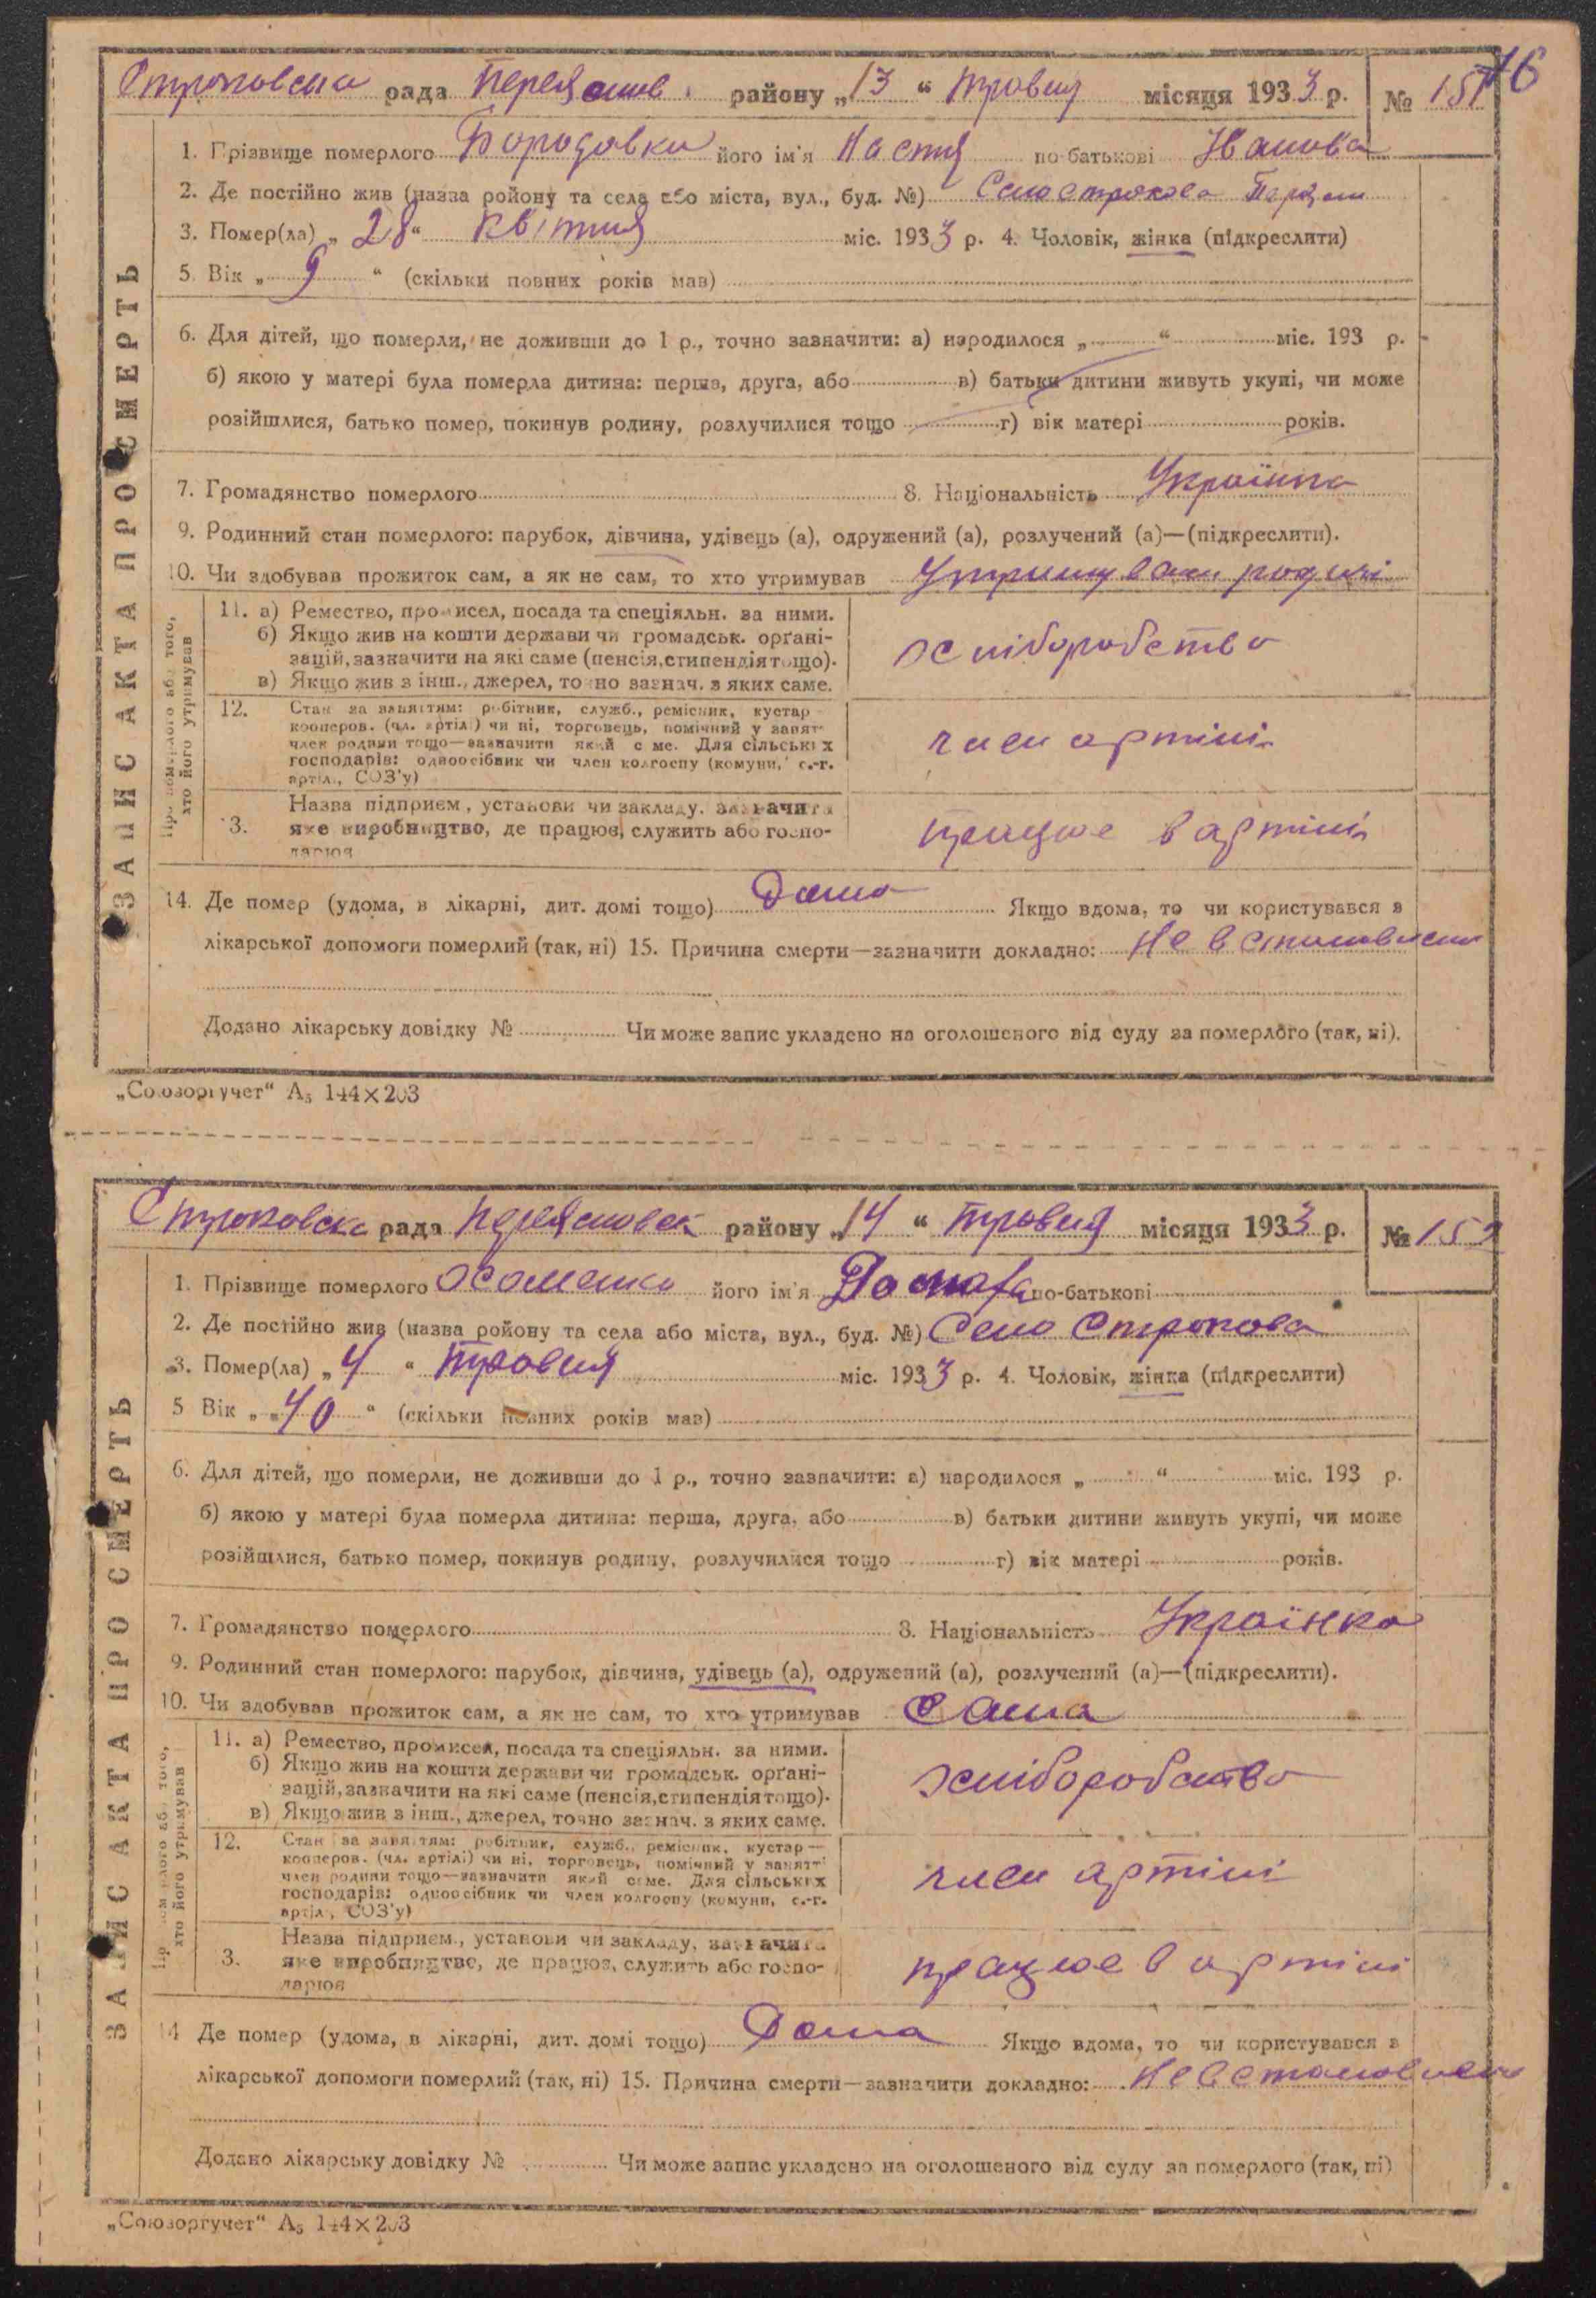 76
Строковська рада Переяслов. району „13“ травня місяця 1933 р. № 151
ЗАПИС АКТА ПРО СМЕРТЬ
1. Прізвище померлого Бородавка його ім'я Настя по-батькові Іванова
2. Де постійно жив (назва ройону та села або міста, вул., буд. №) Село Строкова
3. Помер(ла) „28“ квітня міс. 1933 р. 4. Чоловік, жінка (підкреслити)
5. Вік „9“ (скільки повних років мав)
6. Для дітей, що померли, не доживши до 1 р., точно зазначити: а) народилося „ “ міс. 193 р.
б) якою у матері була померла дитина: перша, друга, або в) батьки дитини живуть укупі, чи може
розійшлися, батько помер, покинув родину, розлучилися тощо г) вік матері років.
7. Громадянство померлого 8. Національність Українка
9. Родинний стан померлого: парубок, дівчина, удівець (а), одружений (а), розлучений (а)—(підкреслити).
10. Чи здобував прожиток сам, а як не сам, то хто утримував Утримували родичі
Про померлого або того, хто його утримував
11. а) Ремество, промисел, посада та спеціяльн. за ними.
б) Якщо жив на кошти держави чи громадськ. орґані-
зацій, зазначити на які саме (пенсія, стипендія тощо).
в) Якщо жив з інш., джерел, точно зазнач. з яких саме.
хліборобство
12. Стан за заняттям: робітник, служб., ремісник, кустар—
кооперов. (чл. артілі) чи ні, торговець, помічний у занятт.
член родини тощо—зазначити який саме. Для сільських
господарів: одноосібник чи член колгоспу (комуни, с.-г.
артілі, СОЗ'у)
член артілі
13. Назва підприєм., установи чи закладу, зазначити
яке виробництво, де працює, служить або госпо-
дарює
працює в артілі
14. Де помер (удома, в лікарні, дит. домі тощо) Дома Якщо вдома, то чи користувався з
лікарської допомоги померлий (так, ні) 15. Причина смерти—зазначити докладно: Не встановлено
Додано лікарську довідку № Чи може запис укладено на оголошеного від суду за померлого (так, ні).
„Союзоргучет“ А₅ 144×203
Строковська рада Переясловск району „14“ травня місяця 1933 р. № 152
ЗАПИС АКТА ПРО СМЕРТЬ
1. Прізвище померлого його ім'я по-батькові
2. Де постійно жив (назва ройону та села або міста, вул., буд. №) Село Строкова
3. Помер(ла) „4“ травня міс. 1933 р. 4. Чоловік, жінка (підкреслити)
5 Вік „40“ (скільки повних років мав)
6. Для дітей, що померли, не доживши до 1 р., точно зазначити: а) народилося „ “ міс. 193 р.
б) якою у матері була померла дитина: перша, друга, або в) батьки дитини живуть укупі, чи може
розійшлися, батько помер, покинув родину, розлучилися тощо г) вік матері років.
7. Громадянство померлого 8. Національність Українка
9. Родинний стан померлого: парубок, дівчина, удівець (а), одружений (а), розлучений (а)—(підкреслити).
10. Чи здобував прожиток сам, а як не сам, то хто утримував Сама
Про померлого або того, хто його утримував
11. а) Ремество, промисел, посада та спеціяльн. за ними.
б) Якщо жив на кошти держави чи громадськ. орґані-
зацій, зазначити на які саме (пенсія, стипендія тощо).
в) Якщо жив з інш., джерел, точно зазнач. з яких саме.
хліборобство
12. Стан за заняттям: робітник, служб., ремісник, кустар—
кооперов. (чл. артілі) чи ні, торговець, помічний у занятті
член родини тощо—зазначити який саме. Для сільських
господарів: одноосібник чи член колгоспу (комуни, с.-г.
артілі, СОЗ'у)
член артілі
3. Назва підприєм., установи чи закладу, зазначити
яке виробництво, де працює, служить або госпо-
дарює
працює в артілі
14 Де помер (удома, в лікарні, дит. домі тощо) Дома Якщо вдома, то чи користувався з
лікарської допомоги померлий (так, ні) 15. Причина смерти—зазначити докладно: Не встановлено
Додано лікарську довідку № Чи може запис укладено на оголошеного від суду за померлого (так, ні)
„Союзоргучет“ А₅ 144×203